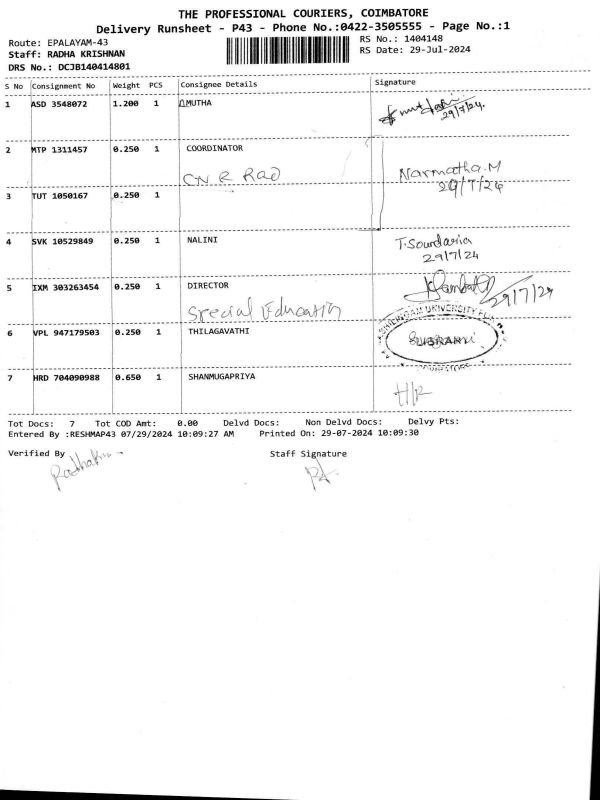 THE PROFESSIONAL COURIERS, COIMBATORE
Delivery Runsheet - P43 - Phone No.:0422-3505555 - Page No.:1
Route: EPALAYAM-43 RS No.: 1404148
Staff: RADHA KRISHNAN RS Date: 29-Jul-2024
DRS No.: DCJB140414801
S No Consignment No Weight PCS Consignee Details Signature
1 ASD 3548072 1.200 1 AMUTHA
29/7/24.
2 MTP 1311457 0.250 1 COORDINATOR
CN R Rao Narmatha.M
29/7/24
3 TUT 1050167 0.250 1
4 SVK 10529849 0.250 1 NALINI T.Soundaria
29/7/24
5 IXM 303263454 0.250 1 DIRECTOR
Special Education 29/7/24
6 VPL 947179503 0.250 1 THILAGAVATHI
7 HRD 704090988 0.650 1 SHANMUGAPRIYA
H/R
Tot Docs: 7 Tot COD Amt: 0.00 Delvd Docs: Non Delvd Docs: Delvy Pts:
Entered By :RESHMAP43 07/29/2024 10:09:27 AM Printed On: 29-07-2024 10:09:30
Verified By Staff Signature